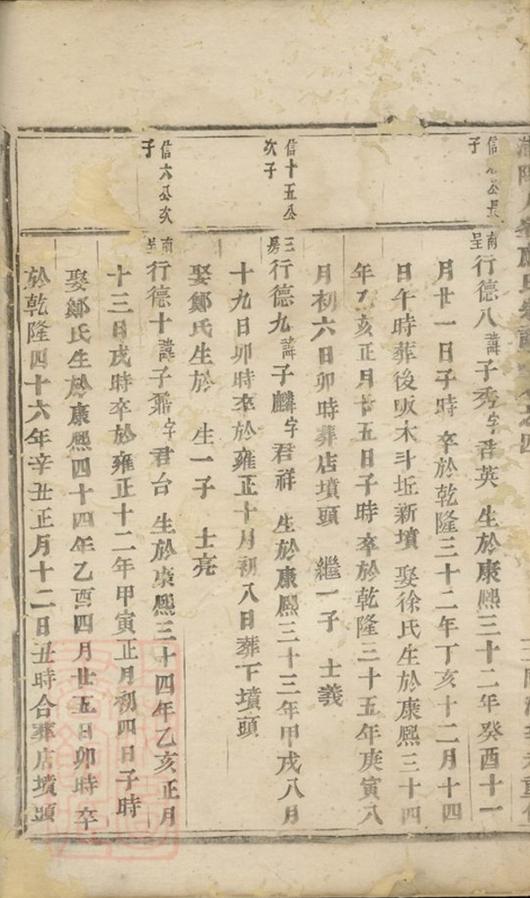 子
南呈行德八諱子秀字君英 生於康熙三十二年癸酉十一
月廿一日子時 卒於乾隆三十二年丁亥十二月十四
日午時葬後坂木斗坵新墳 娶徐氏生於康熙三十四
年乙亥正月廿五日子時卒於乾隆三十五年庚寅八
月初六日卯時葬店墳頭 繼一子 士義
信十五公次子
三房行德九諱子麟字君祥 生於康熙三十三年甲戌八月
十九日卯時卒於雍正十月初八日葬下墳頭
娶鄭氏生於 生一子 士亮
信六公次子
南呈行德十諱子鼐字君台 生於康熙三十四年乙亥正月
十三日戌時卒於雍正十二年甲寅正月初四日子時
娶鄭氏生於康熙四十四年乙酉四月廿五日卯時卒
於乾隆四十六年辛丑正月十二日丑時合葬店墳頭